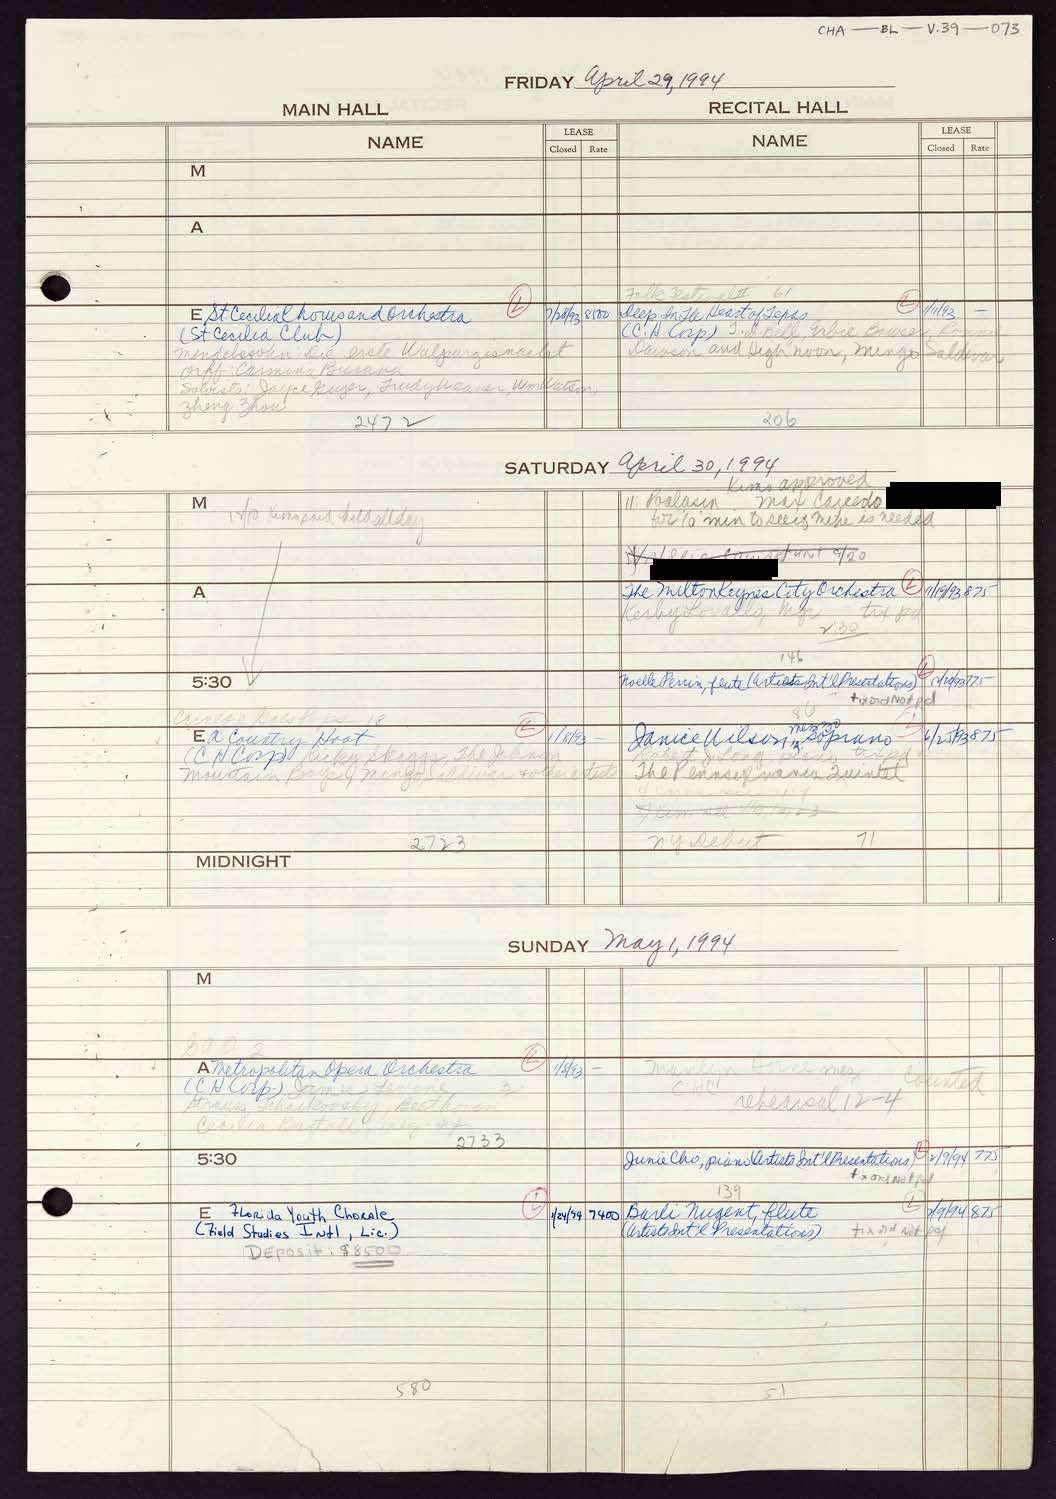 CHA — BL — V.39 — 073
FRIDAY April 29, 1994
MAIN HALL
RECITAL HALL
NAME
LEASE
Closed Rate
NAME
LEASE
Closed Rate
M
A
Folk Festival II 61
E St Cecilia Chorus and Orchestra L 7/20/93 8500
(St Cecilia Club)
Mendelssohn: Die erste Walpurgisnacht
Orff: Carmina Burana
Soloists: Joyce Guyer, Trudy Weaver, Wm Watson,
Zheng Zhou
2472
Deep In The Heart of Texas L 1/11/93 —
(C.H Corp) T.D. Bell, Erbie Bowser,
Dawson and High Noon, Mingo Saldivar
206
SATURDAY April 30, 1994
M
hold all day
Kims approved
11: Max Caicedo
for 10 min to see if mike is needed
9/20
A
The Milton Keynes City Orchestra L 11/19/93 875
Kerby Lovallo, Mgr tix pd
2:30
146
5:30
Noelle Perrin, flute (Artists Int'l Presentations) L 775
tix ord Not pd
86
Carnegie Hall Folk 18
E A Country Hoot L 1/8/93 —
(C H Corp) Ricky Skaggs, The Johnson
Mountain Boys, Mingo Saldivar + other artists
2723
Janice Wilson, mezzo soprano L 6/25/93 875
The Pennsylvania Quintet
NY Debut 71
MIDNIGHT
SUNDAY May 1, 1994
M
A Metropolitan Opera Orchestra L 1/8/93 —
(C H Corp.) James Levine 3
Strauss, Tchaikovsky, Beethoven
Cecilia Bartoli, mezzo-sop
2733
Marilyn Horne mez counted
CHC
rehearsal 12-4
5:30
June Cho, piano (Artists Int'l Presentations) L 2/9/94 775
tix ord Not pd
139
E Florida Youth Chorale L 1/24/94 7400
(Field Studies Int'l, Lic.)
Deposit: $8500
580
Barli Nugent, flute L 2/9/94 875
(Artists Int'l Presentations) tix ord Not pd
51